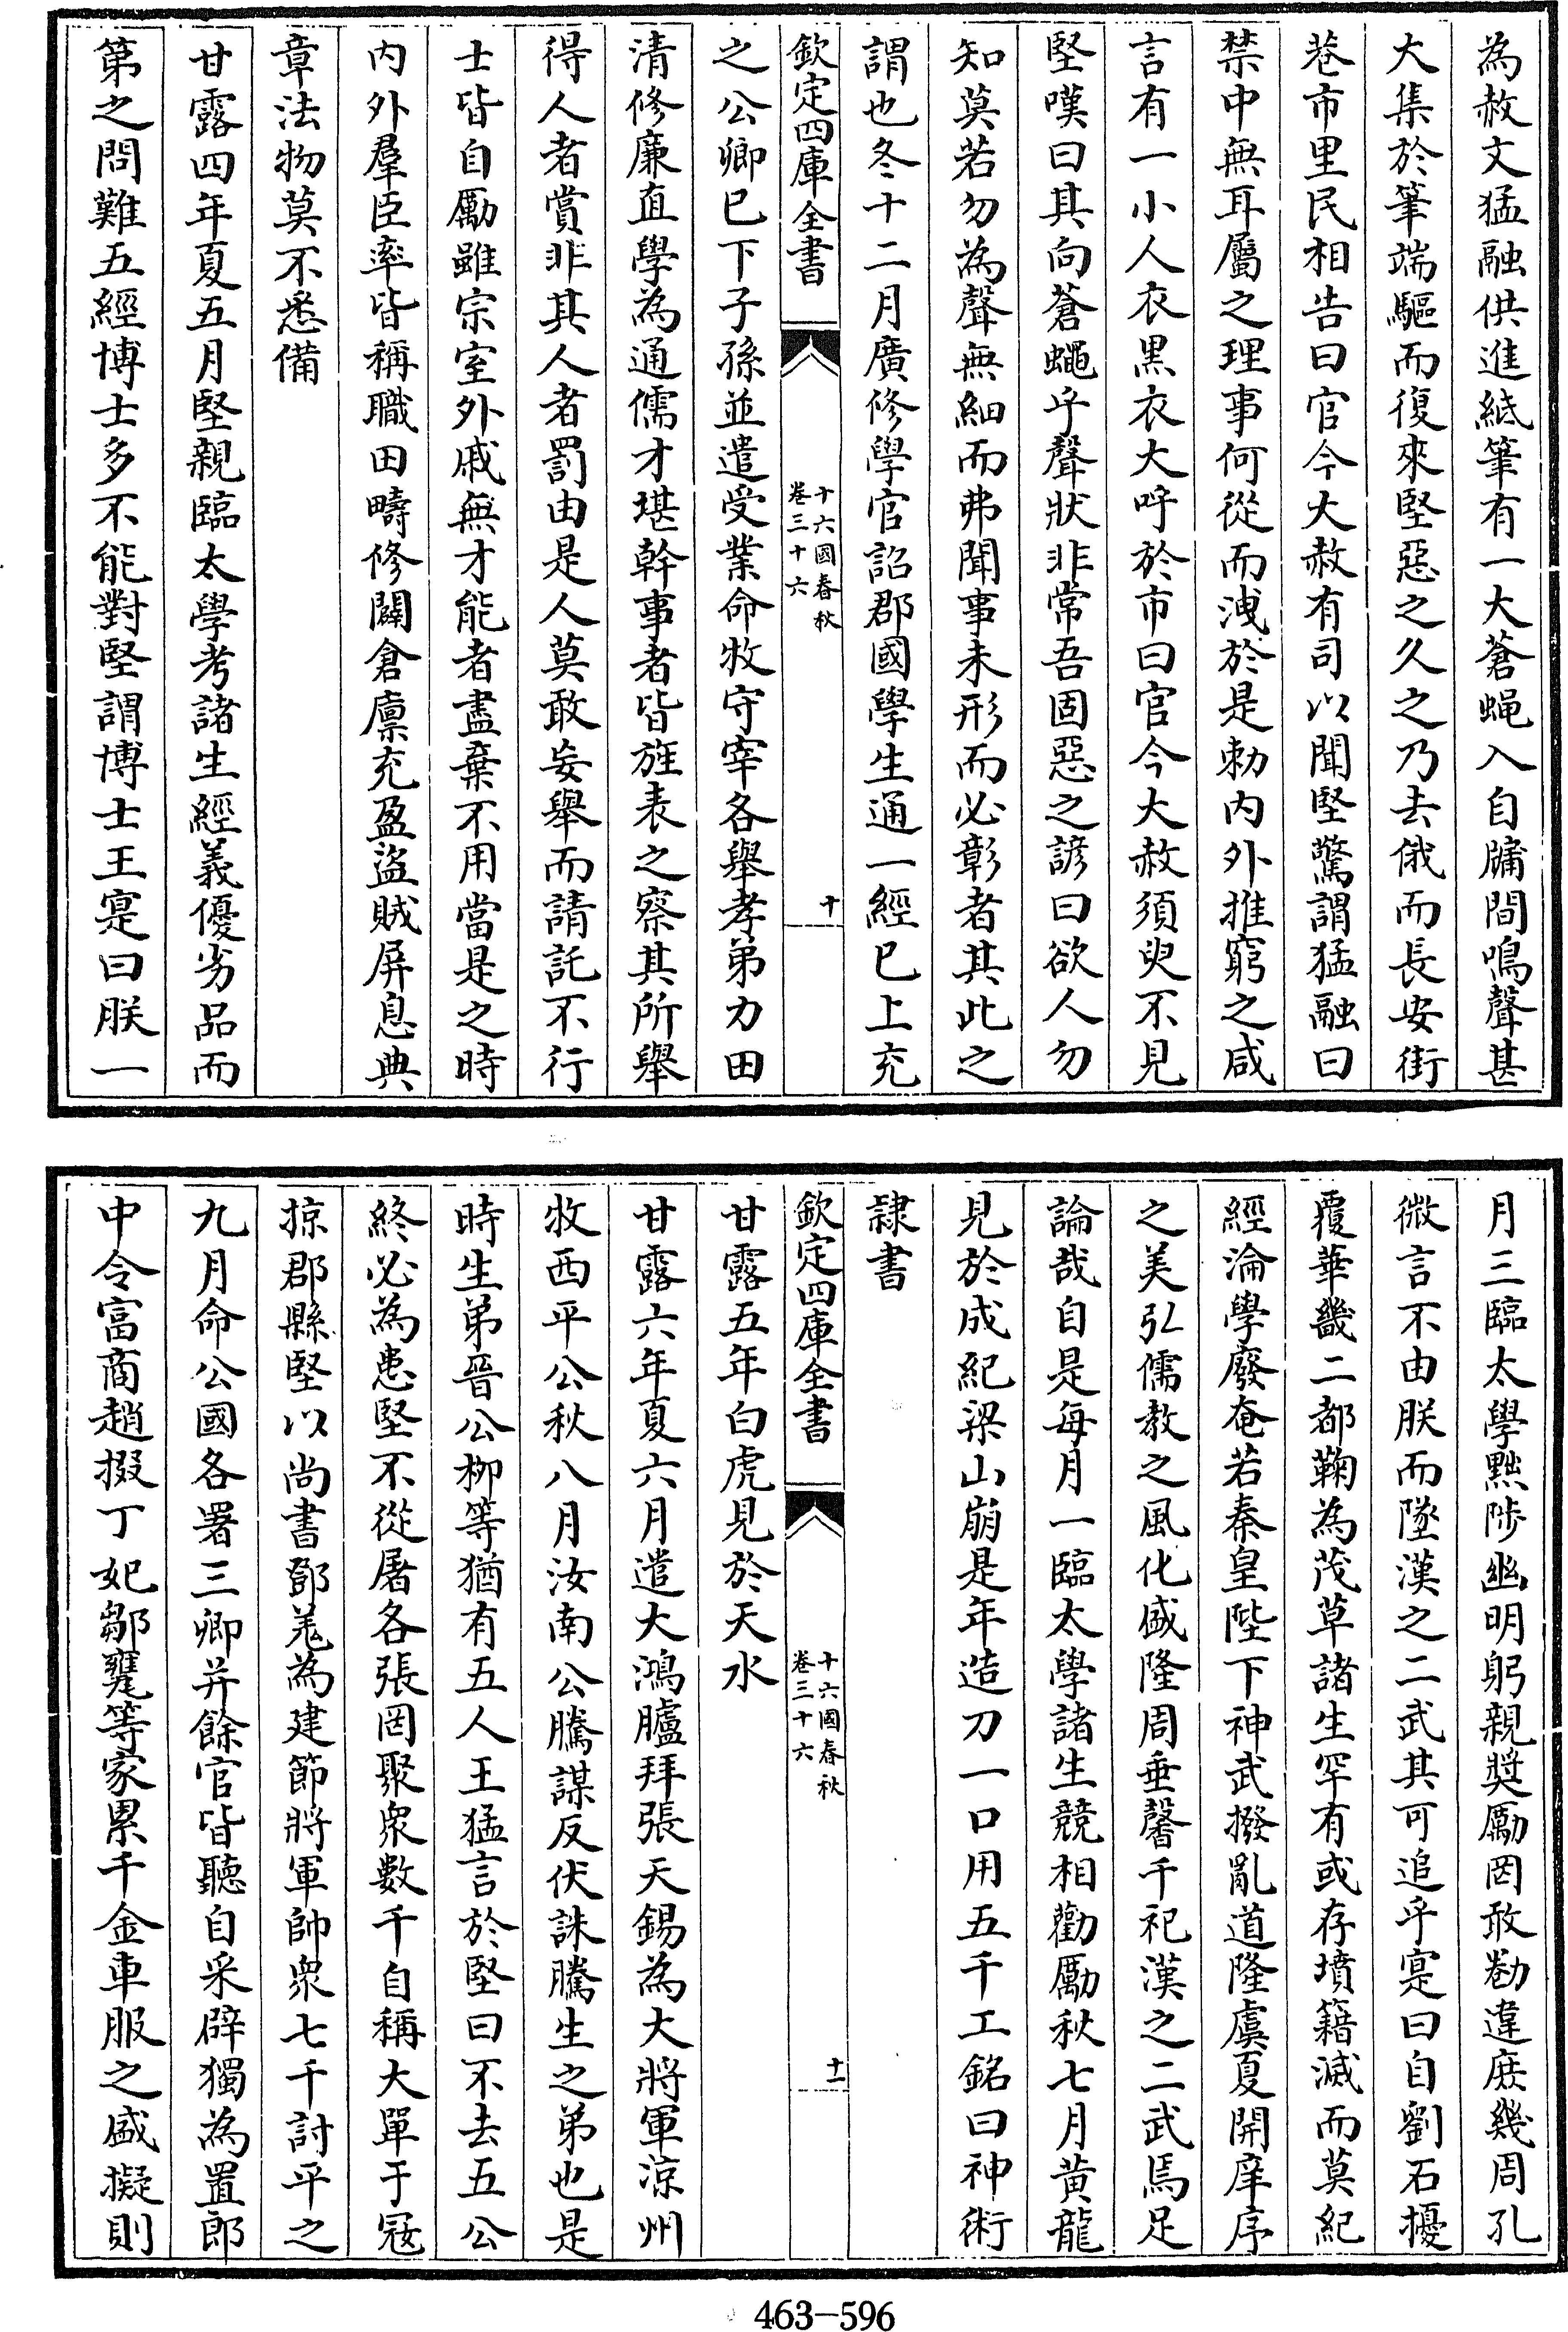 為赦文猛融供進紙筆有一大蒼蠅入自牖間鳴聲甚
大集於筆端驅而復來堅惡之久之乃去俄而長安街
巷市里民相告曰官今大赦有司以聞堅驚謂猛融曰
禁中無耳屬之理事何從而洩於是勅内外推窮之咸
言有一小人衣黒衣大呼於市曰官今大赦須臾不見
堅嘆曰其向蒼蠅乎聲狀非常吾固惡之諺曰欲人勿
知莫若勿為聲無細而弗聞事未形而必彰者其此之
謂也冬十二月廣修學官詔郡國學生通一經已上充
欽定四庫全書
十六國春秋
卷三十六
十
之公卿已下子孫並遣受業命牧守宰各舉孝弟力田
清修廉直學為通儒才堪幹事者皆旌表之察其所舉
得人者賞非其人者罰由是人莫敢妄舉而請託不行
士皆自勵雖宗室外戚無才能者盡棄不用當是之時
内外羣臣率皆稱職田疇修闢倉廪充盈盜賊屏息典
章法物莫不悉備
甘露四年夏五月堅親臨太學考諸生經義優劣品而
第之問難五經博士多不能對堅謂博士王寔曰朕一
月三臨太學黜陟幽明躬親奬勵罔敢勌違庶幾周孔
微言不由朕而墜漢之二武其可追乎寔曰自劉石擾
覆華畿二都鞠為茂草諸生罕有或存墳籍滅而莫紀
經淪學廢奄若秦皇陛下神武撥亂道隆虞夏開庠序
之美弘儒教之風化盛隆周垂馨千祀漢之二武焉足
論哉自是每月一臨太學諸生競相勸勵秋七月黄龍
見於成紀梁山崩是年造刀一口用五千工銘曰神術
隸書
欽定四庫全書
十六國春秋
卷三十六
十一
甘露五年白虎見於天水
甘露六年夏六月遣大鴻臚拜張天錫為大將軍涼州
牧西平公秋八月汝南公騰謀反伏誅騰生之弟也是
時生弟晉公柳等猶有五人王猛言於堅曰不去五公
終必為患堅不從屠各張罔聚衆數千自稱大單于冦
掠郡縣堅以尚書鄧羌為建節將軍帥衆七千討平之
九月命公國各署三卿并餘官皆聽自采辟獨為置郎
中令富商趙掇丁妃鄒瓮等家累千金車服之盛擬則
463-596